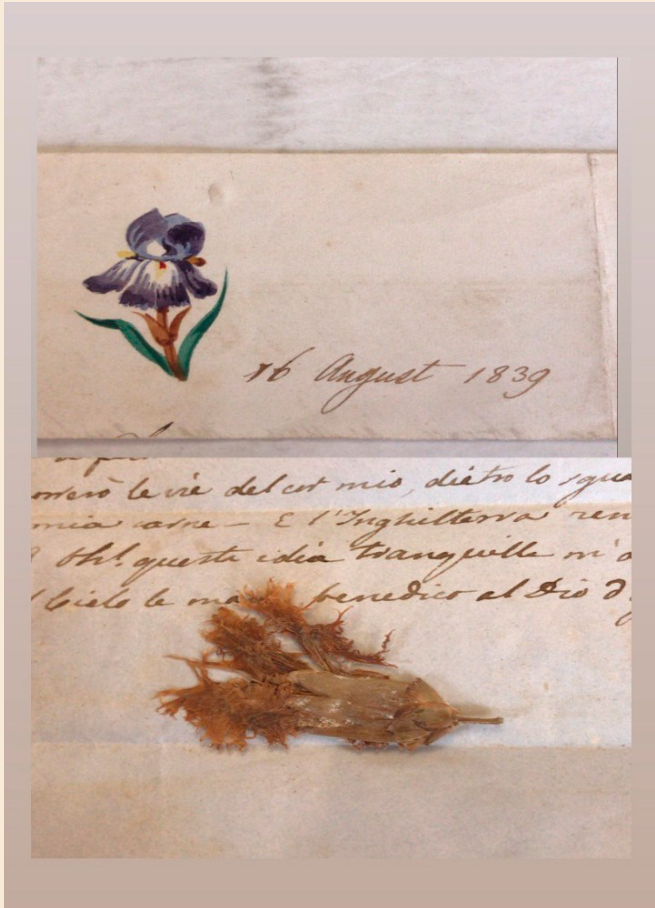 16 August 1839
le vie del cor mio, dietro lo
mia carne – E l'Inghilterra
Oh! queste idia tranquille m'
Cielo le ma benedico al Dio